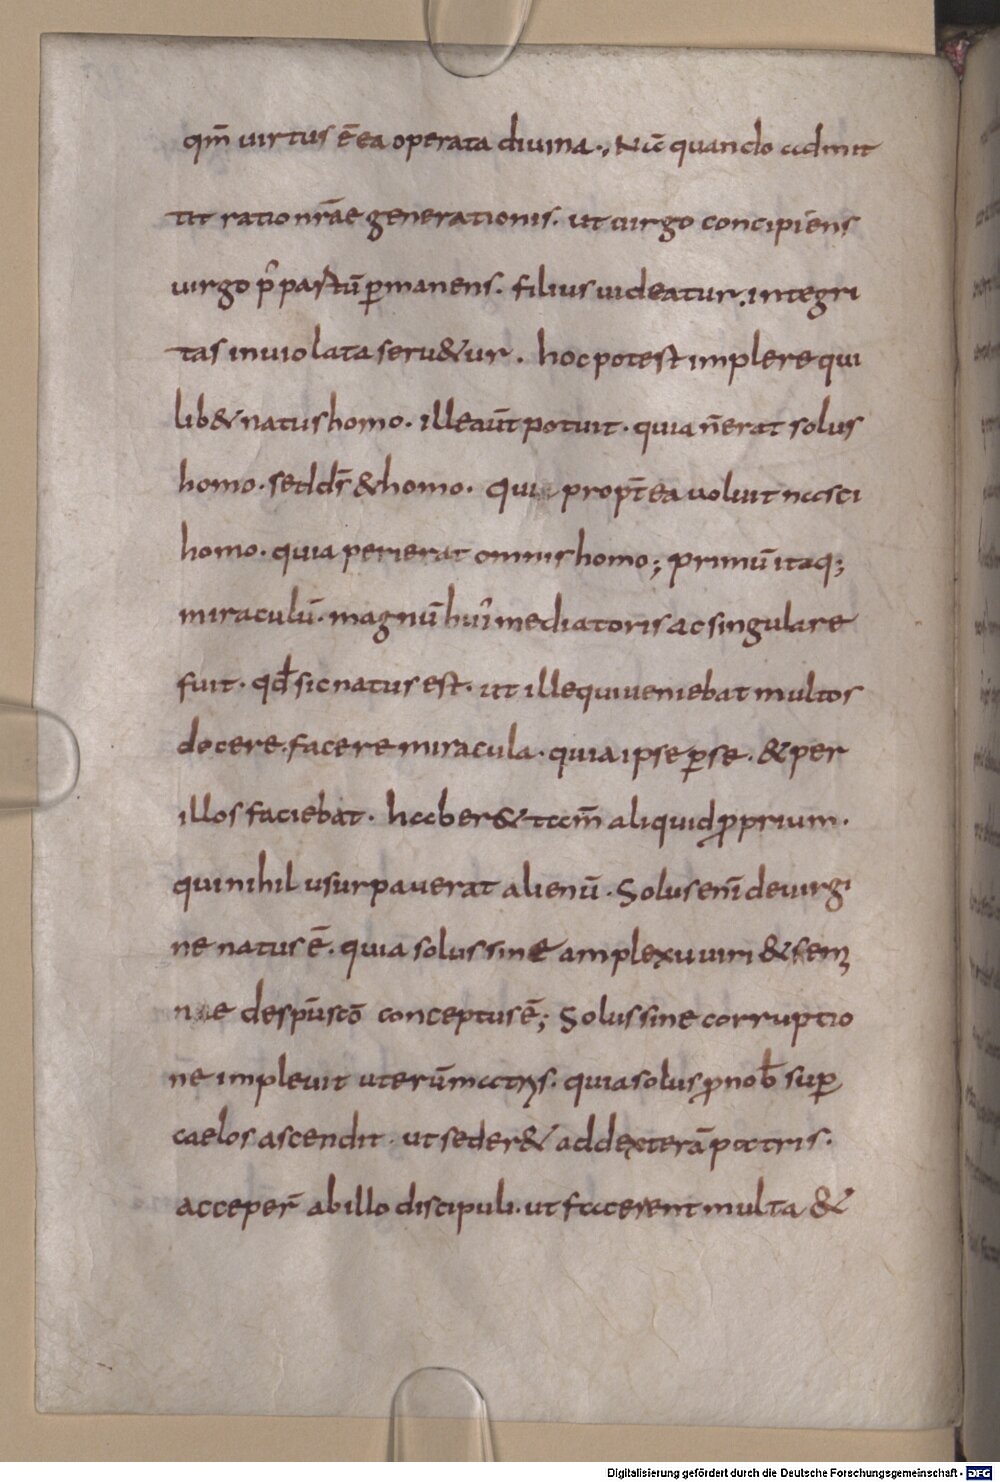 qm̄ uirtus ē ea operata diuina., Nūc quando admit
tit ratio nr̄ae generationis. ut uirgo concipiens
uirgo p᷒ partū ꝑmanens. filius uideatur. integri
tas inuiolata seru&ur. hoc potest implere qui
lib& natus homo. ille aūt potuit. quia n̄ erat solus
homo. sed ds̄ & homo. qui propt̄ea uoluit nasci
homo. quia perierat omnis homo; primū itaq;
miraculū. magnū hui᷒ mediatoris ac singulare
fuit. qd̄ sic natus est. ut ille qui ueniebat multos
docere. facere miracula. quia ipse ꝑ se. & per
illos faciebat. haber& tam̄ aliquid ꝓprium.
qui nihil usurpauerat alienū. Solus enī de uirgi
ne natus ē. quia solus sine amplexu uiri &
de spū sc̄o conceptus ē; Solus sine corruptio
ne impleuit uterū matris. quia solus ꝓ nob̄ suꝑ
caelos ascendit. ut seder& ad dexterā patris.
acceper̄ ab illo discipuli. ut facerent multa &
Digitalisierung gefördert durch die Deutsche Forschungsgemeinschaft - DFG